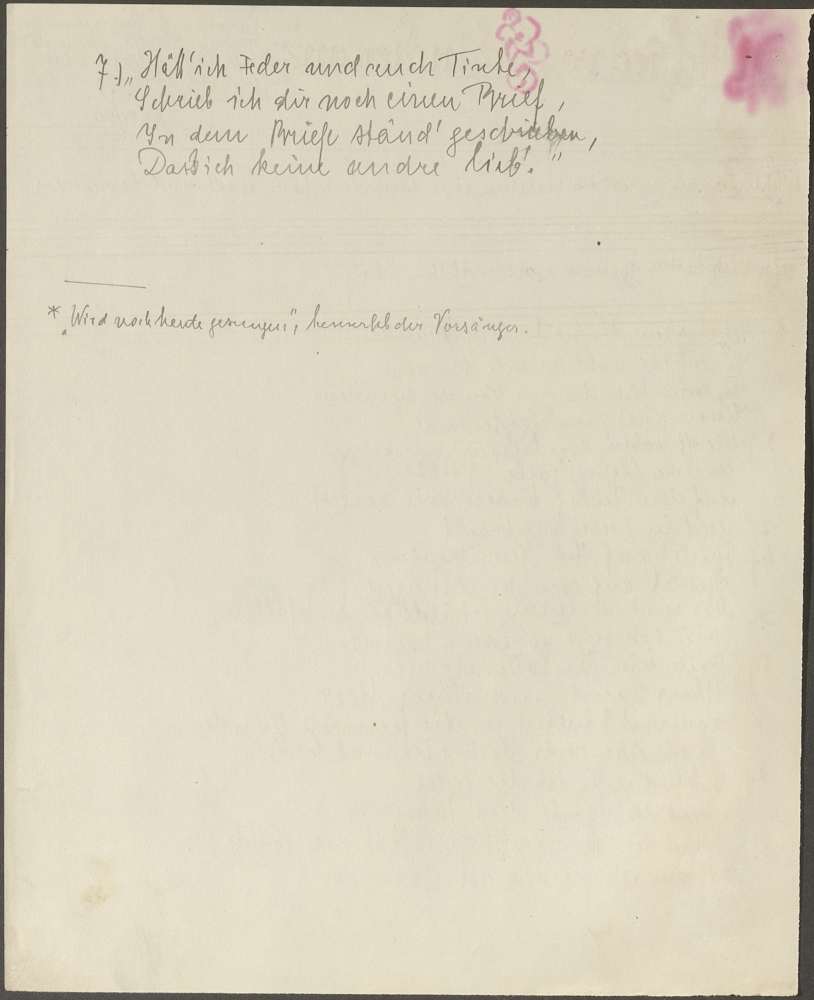 7.) „Hätt' ich Feder und auch Tinte,
Schrieb ich dir noch einen Brief,
In dem Briefe ständ' geschrieben,
Dass ich keine andre lieb'."
* „Wird noch heute gesungen", bemerkt der Vorsänger.